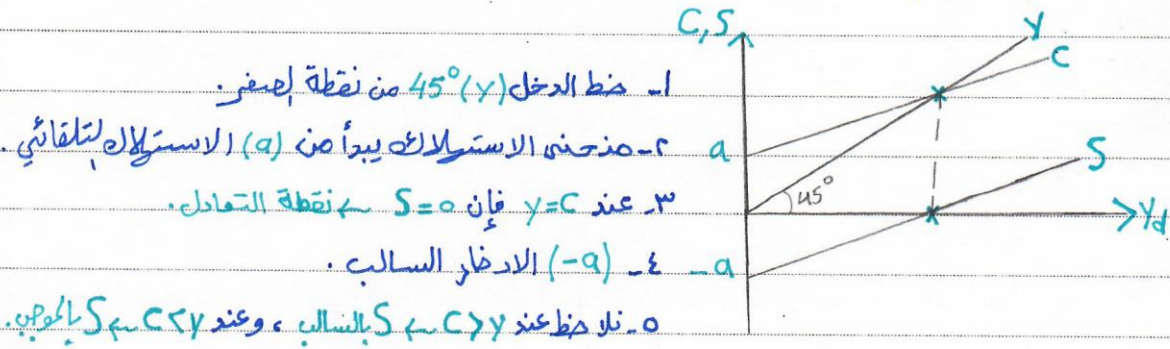 C,S
y
C
١- خط الدخل (y) 45° من نقطة الصفر.
٢- منحنى الاستهلاك يبدأ من (a) الاستهلاك التلقائي.
a
S
٣- عند y=C فإن S=0 ← نقطة التعادل.
45°
yd
٤- (-a) الادخار السالب.
-a
٥- نلاحظ عند C>y ← S بالسالب ، وعند C<y ← S بالموجب.